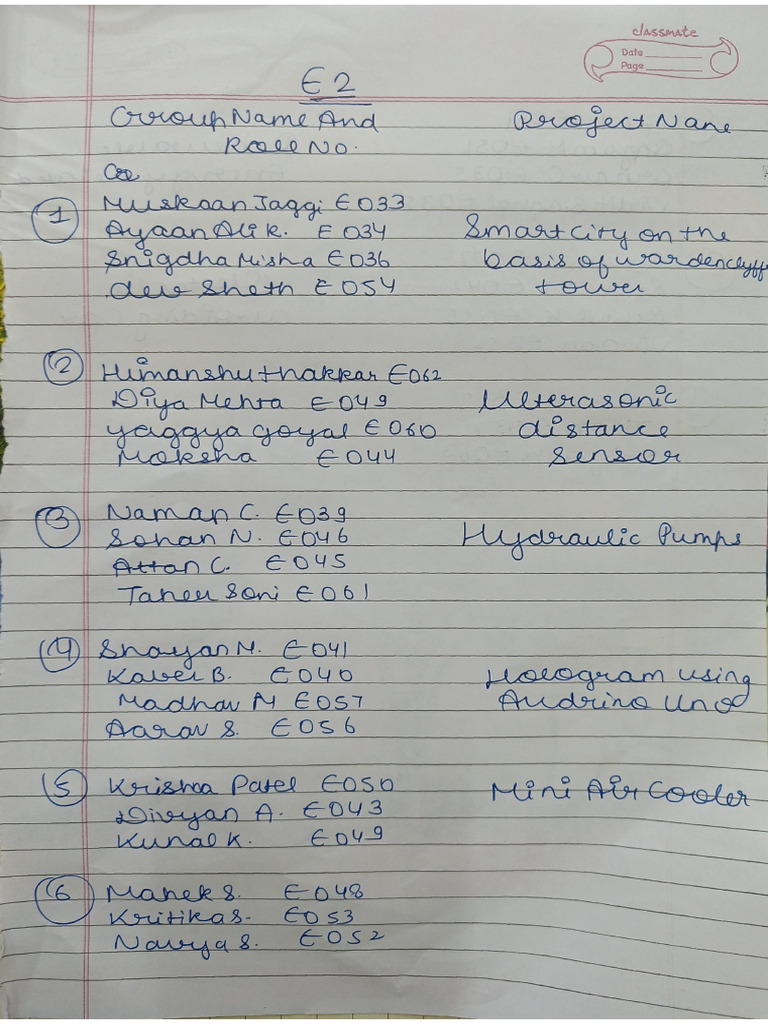 classmate
Date
Page
E2
Group Name And Project Name
Roll No.
1 Muskaan Jaggi E033
Ayaan Ali K. E034 Smart City on the
Snigdha Misha E036 basis of wardenclyff
dev Sheth E054 tower
2 Himanshu thakkar E062
Diya Mehta E049 Ulterasonic
yaggya goyal E060 distance
Moksha E044 sensor
3 Naman C. E039
Sohan N. E046 Hydraulic Pumps
C. E045
Taher Soni E061
4 Shayan M. E041
B. E040 Hologram using
Madhav M E057 Audrino Uno
Aarav S. E056
5 Krishna Patel E050 Mini Air Cooler
Divyan A. E043
Kunal K. E049
6 Manek S. E048
Kritika S. E053
Navya S. E052